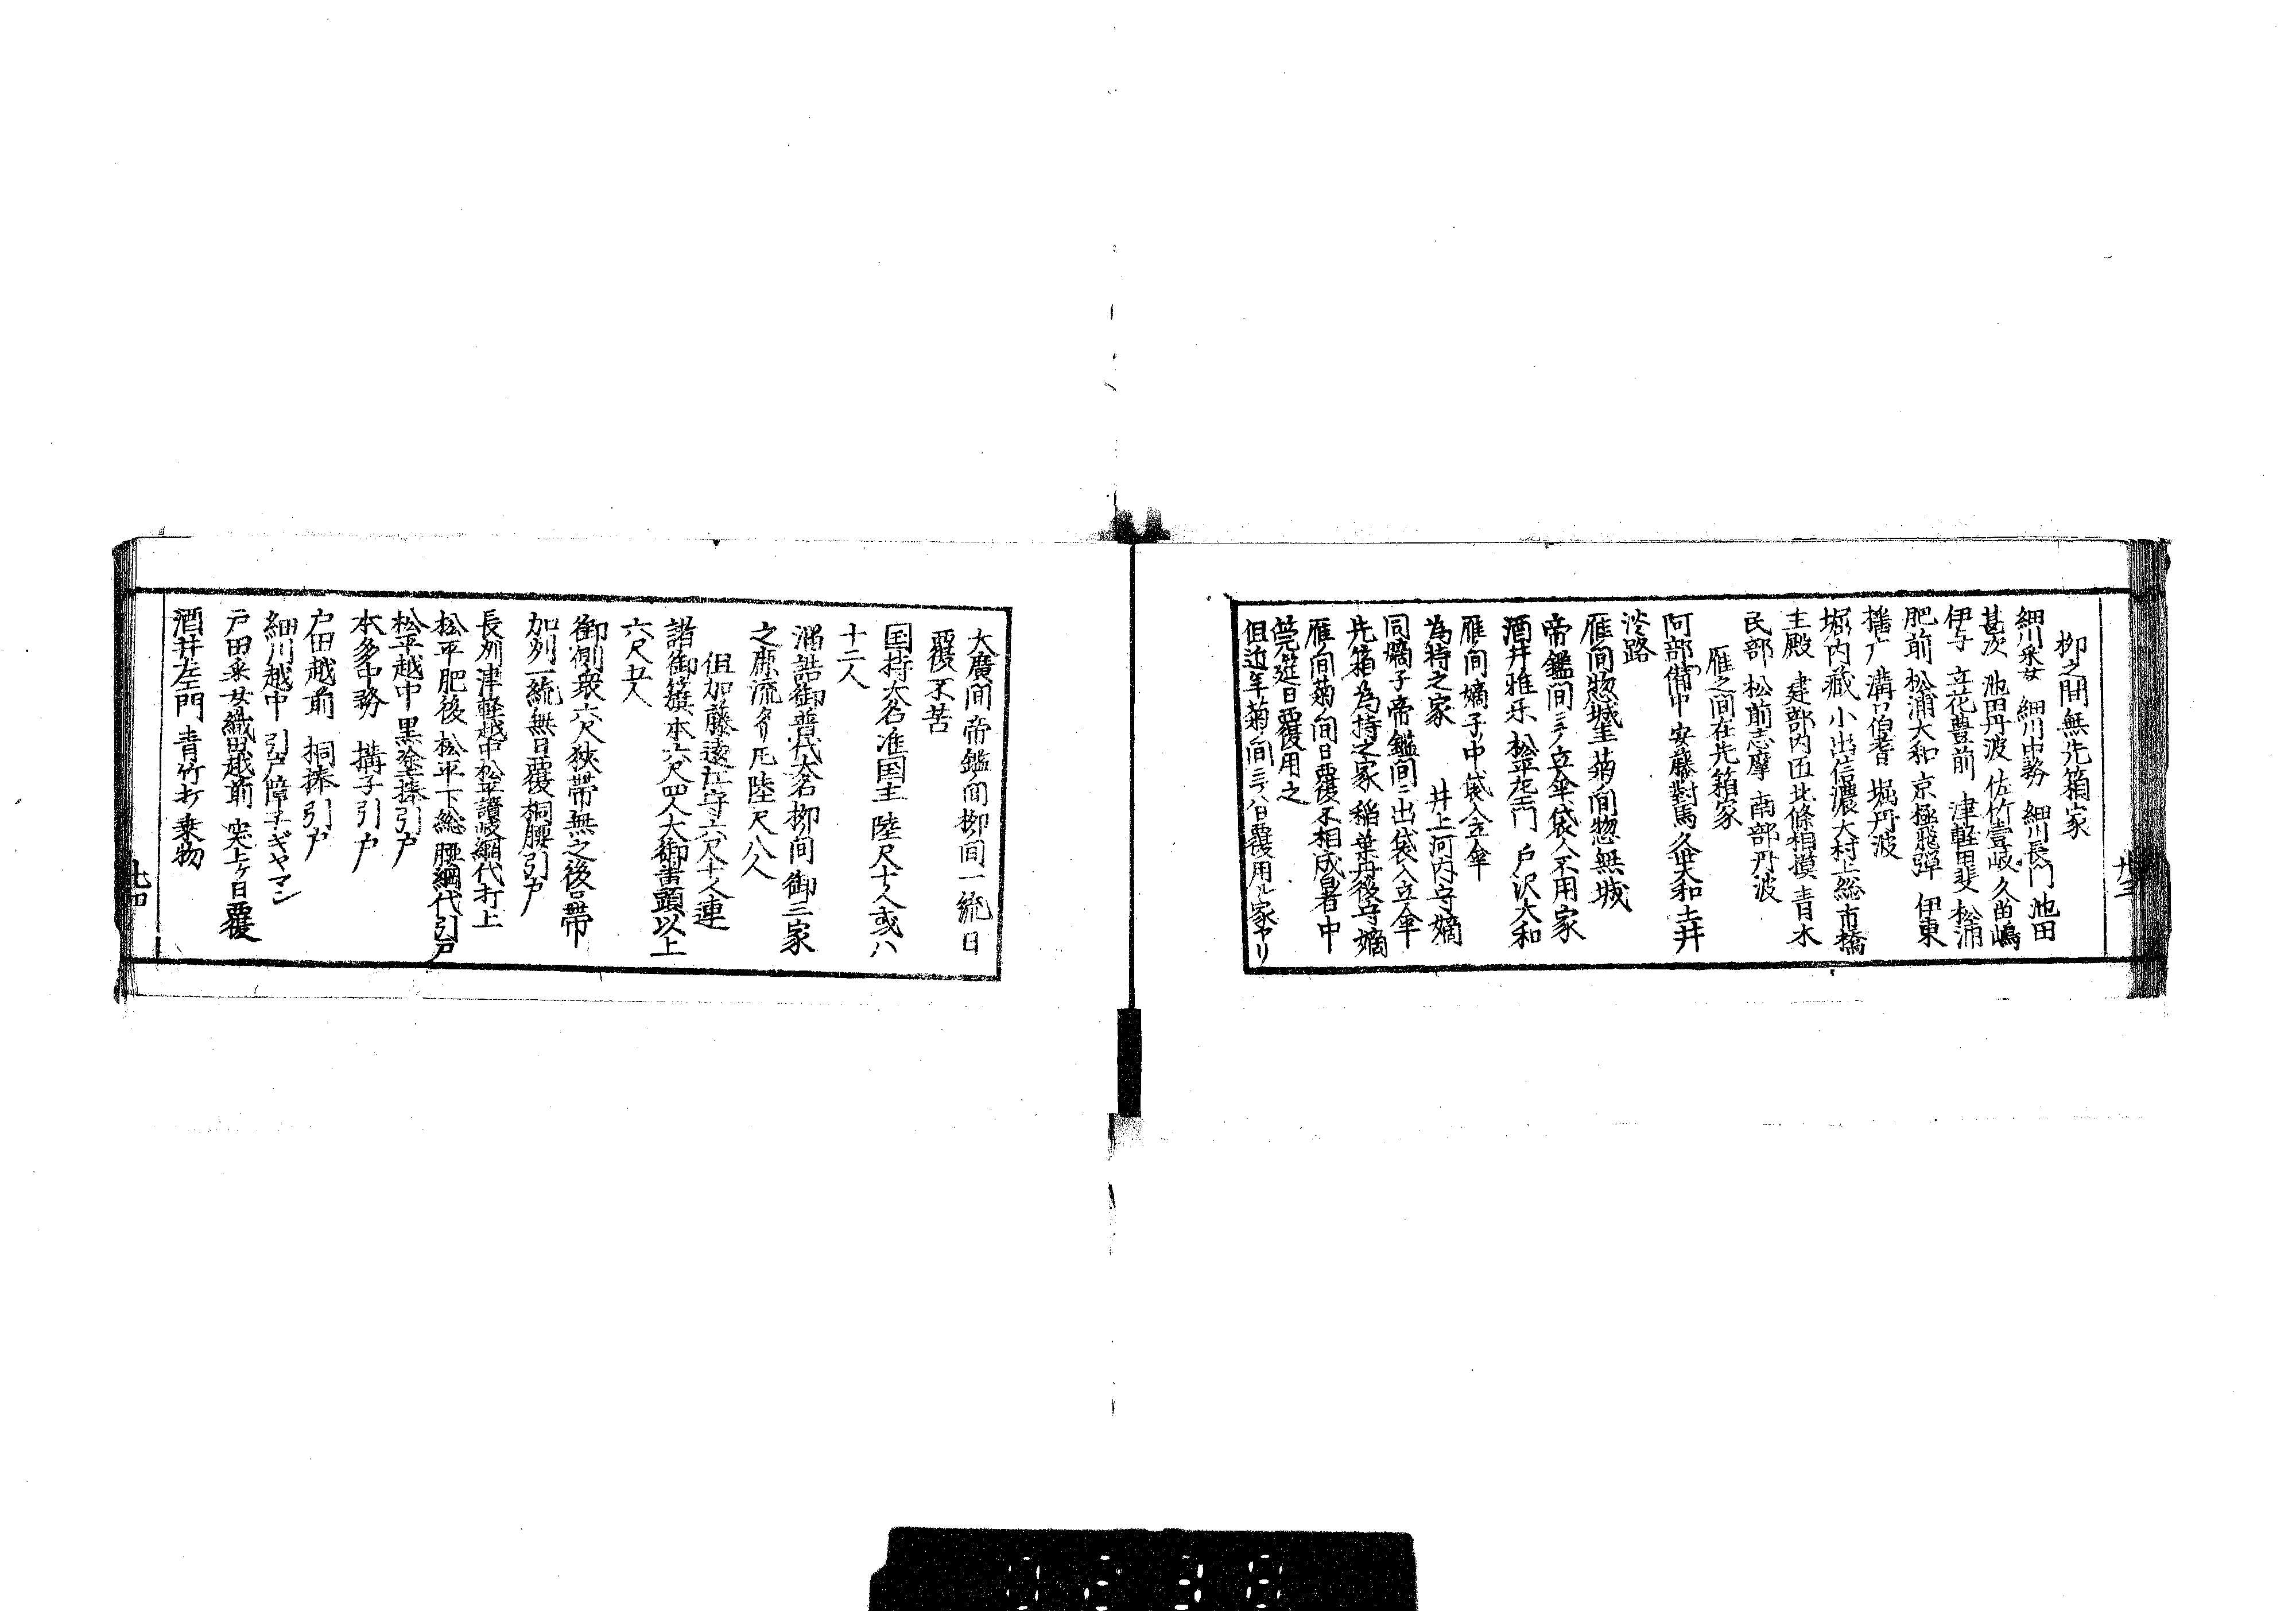 柳之間無先箱家
細川采女 細川中務 細川長門 池田
甚次 池田丹波 佐竹壹岐 久留嶋
伊予 立花豊前 津軽甲斐 松浦
肥前 松浦大和 京極飛弾 伊東
播广 溝口伯耆 堀丹波
堀内蔵 小出信濃 大村上総 市橋
主殿 建部内匠 北條相摸 青木
民部 松前志摩 南部丹波
雁之间在先箱家
阿部備中 安藤對馬 久世大和 土井
淡路
雁间惣城主菊ノ间惣無城
帝鑑间ニテ立傘袋入不用家
酒井雅樂 松平左エ門 戸沢大和
雁ノ间嫡子中袋入立傘
為持之家 井上河内守嫡
同嫡子帝鑑间ニ出袋入立傘
先箱為持之家 稲葉丹後守嫡
雁ノ间菊ノ间日覆不相成暑中
莞莚日覆用之
但近年菊ノ间ニテハ日覆用ル家アリ
廿三
大廣间帝鑑ノ间柳间一統日
覆不苦
国持大名准国主陸尺十人或ハ
十二人
溜詰御普代大名柳间御三家
之庶流タリ𪜈陸尺八人
但加藤遠江守六尺十人連
諸御籏本六尺四人大御書頭以上
六尺五人
御側衆六尺狭帯無之後ロ帯
加列一統無日覆桐腰引戸
長列津軽越中松平讃岐網代打上
松平肥後 松平下総 腰網代引戸
松平越中 黒塗捧引戸
本多中務 搆子引戸
戸田越前 桐捧引戸
細川越中 引戸障子ギヤマン
戸田采女織田越前 突上ケ日覆
酒井左エ門 青竹打乗物
廿四